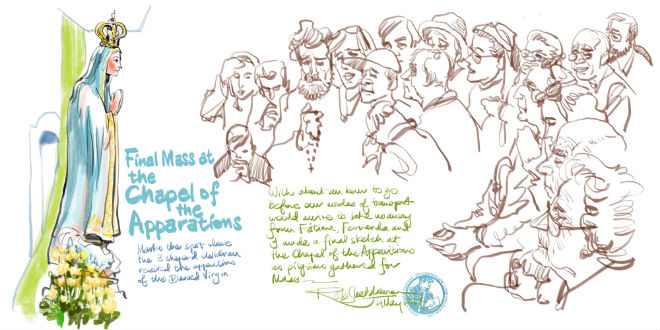 Final Mass at
the
Chapel of
the
Apparations
Marks the spot where
the 3 shepard children
received the apparitions
of the Blessed Virgin.
With about an hour to go
before our modes of transport
would arrive to take us away
from Fátima, Fernanda and
I made a final sketch at
the Chapel of the Apparitions
as pilgrims gathered for
Mass
Rob Sketcherman
May